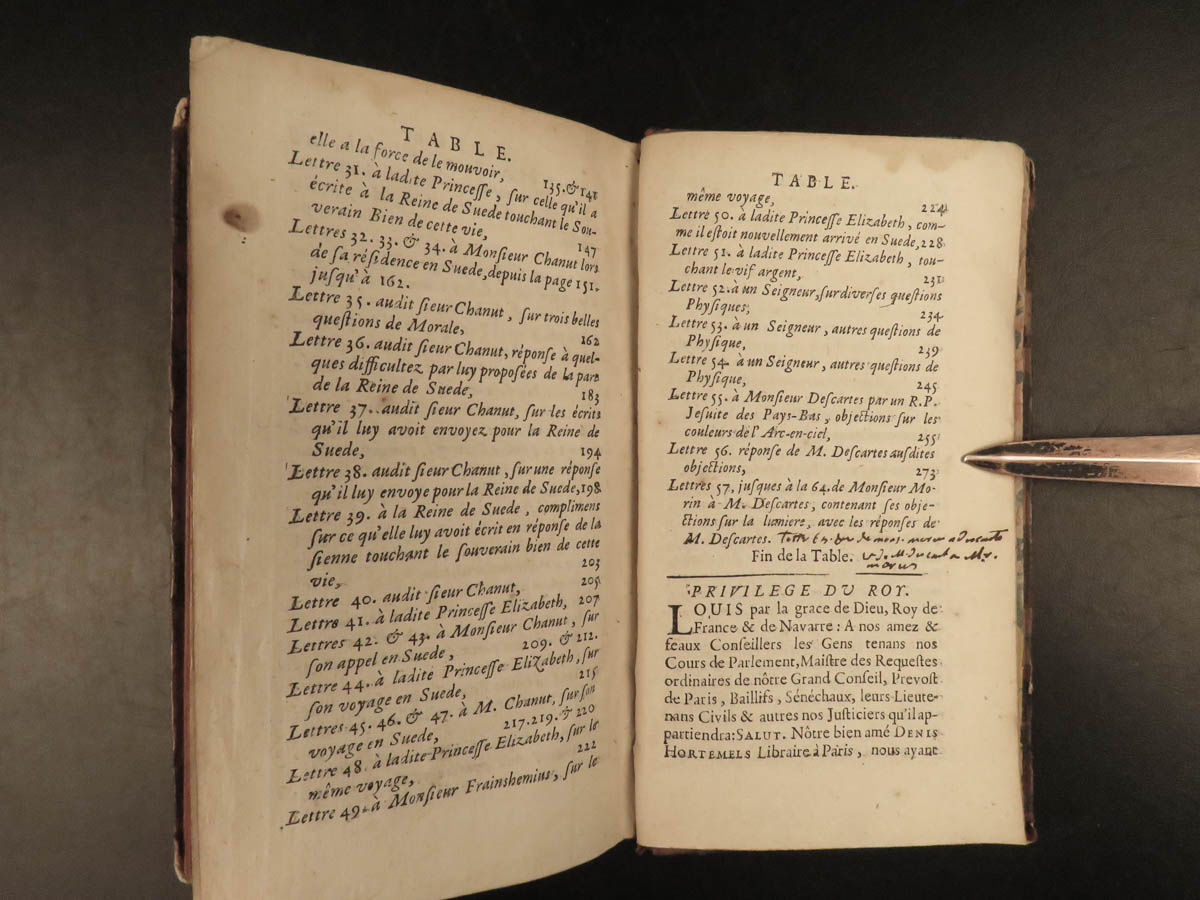 TABLE.
elle a la force de le mouvoir, 135. & 141
Lettre 31. à ladite Princeſſe, ſur celle qu'il a
écrite à la Reine de Suede touchant le Sou-
verain Bien de cette vie, 147
Lettres 32. 33. & 34. à Monſieur Chanut lors
de ſa réſidence en Suede, depuis la page 151.
juſqu'à 162.
Lettre 35. audit ſieur Chanut, ſur trois belles
queſtions de Morale, 162
Lettre 36. audit ſieur Chanut, réponſe à quel-
ques difficultez par luy propoſées de la part
de la Reine de Suede, 183
Lettre 37. audit ſieur Chanut, ſur les écrits
qu'il luy avoit envoyez pour la Reine de
Suede, 194
Lettre 38. audit ſieur Chanut, ſur une réponſe
qu'il luy envoye pour la Reine de Suede, 198
Lettre 39. à la Reine de Suede, complimens
ſur ce qu'elle luy avoit écrit en réponſe de la
ſienne touchant le ſouverain bien de cette
vie, 203
Lettre 40. audit ſieur Chanut, 205
Lettre 41. à ladite Princeſſe Elizabeth, 207
Lettres 42. & 43. à Monſieur Chanut, ſur
ſon appel en Suede, 209. & 212.
Lettre 44. à ladite Princeſſe Elizabeth, ſur
ſon voyage en Suede, 215
Lettres 45. 46. & 47. à M. Chanut, ſur ſon
voyage en Suede, 217. 219. & 220
Lettre 48. à ladite Princeſſe Elizabeth, ſur le
même voyage, 222
Lettre 49. à Monſieur Frainshemius, ſur le
TABLE.
même voyage, 224
Lettre 50. à ladite Princeſſe Elizabeth, com-
me il eſtoit nouvellement arrivé en Suede, 228
Lettre 51. à ladite Princeſſe Elizabeth, tou-
chant le vif argent, 231
Lettre 52. à un Seigneur, ſur diverſes queſtions
Phyſiques, 234
Lettre 53. à un Seigneur, autres queſtions de
Phyſique, 239
Lettre 54. à un Seigneur, autres queſtions de
Phyſique, 245
Lettre 55. à Monſieur Deſcartes par un R. P.
Jeſuite des Pays-Bas, objections ſur les
couleurs de l'Arc-en-ciel, 255
Lettre 56. réponſe de M. Deſcartes auſdites
objections, 273
Lettres 57. juſques à la 64. de Monſieur Mo-
rin à M. Deſcartes, contenant ſes obje-
ctions ſur la lumiere, avec les réponſes de
M. Deſcartes.
Fin de la Table.
PRIVILEGE DU ROY.
LOUIS par la grace de Dieu, Roy de
France & de Navarre: A nos amez &
feaux Conſeillers les Gens tenans nos
Cours de Parlement, Maiſtre des Requeſtes
ordinaires de nôtre Grand Conſeil, Prevoſt
de Paris, Baillifs, Sénéchaux, leurs Lieute-
nans Civils & autres nos Juſticiers qu'il ap-
partiendra: SALUT. Nôtre bien amé DENIS
HORTEMELS Libraire à Paris, nous ayant